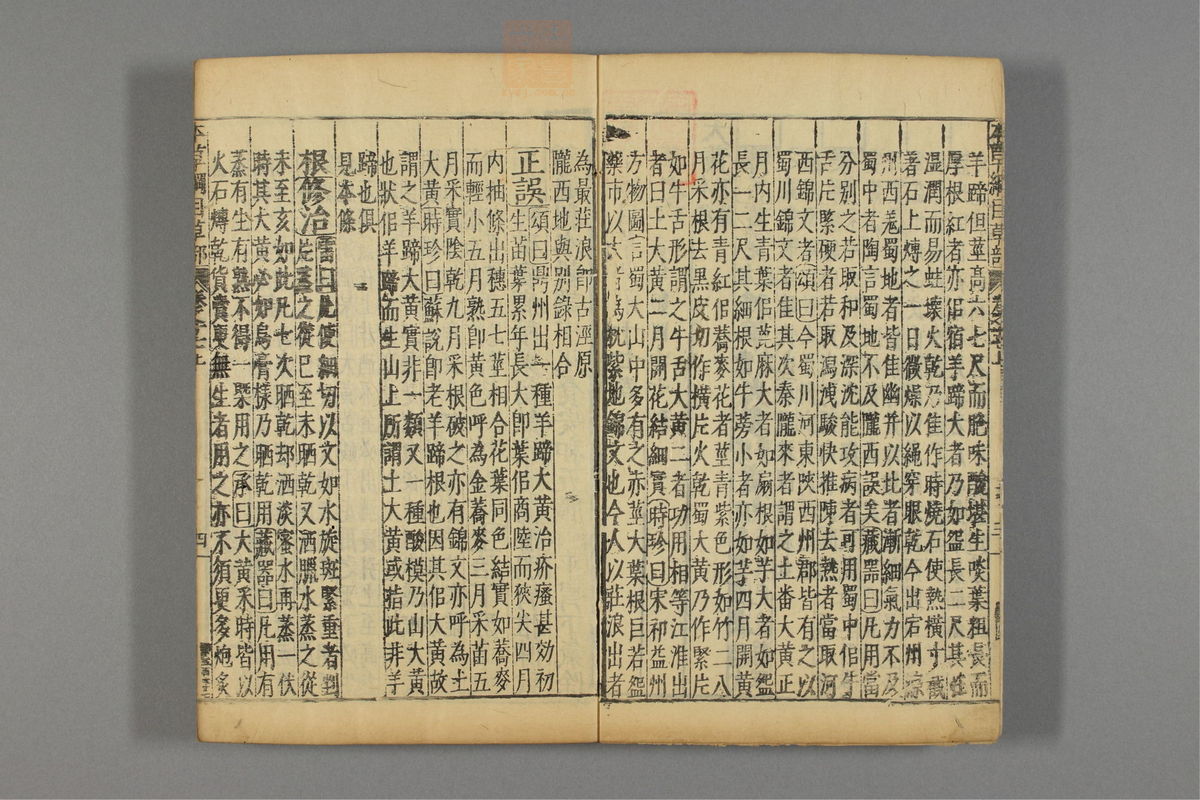 羊蹄但莖高六七尺而脆味酸堪生啖葉粗長而
厚根紅者亦佀宿羊蹄大者乃如盌長二尺其性
溫潤而易蛀壞火乾乃佳作時燒石使熱橫寸截
著石上㷟之一日微燥以繩穿眼乾今出宕州凉
州西羗蜀地者皆佳幽并以北者漸細氣力不及
蜀中者陶言蜀地不及隴西誤矣藏器曰凡用當
分別之若取和及深沈能攻病者可用蜀中佀牛
舌片緊硬者若取瀉洩駿快推陳去熱者當取河
西錦文者頌曰今蜀川河東陝西州郡皆有之以
蜀川錦文者佳其次秦隴來者謂之土番大黃正
月內生青葉佀蓖麻大者如扇根如芋大者如盌
長一二尺其細根如牛蒡小者亦如芋四月開黃
花亦有青紅佀蕎麥花者莖青紫色形如竹二八
月采根去黑皮切作橫片火乾蜀大黃乃作緊片
如牛舌形謂之牛舌大黃二者功用相等江淮出
者曰土大黃二月開花結細實時珍曰宋祁益州
方物圖言蜀大山中多有之赤莖大葉根巨若盌
藥市以大者為枕紫地錦文也今人以莊浪出者
為最莊浪卽古涇原
隴西地與別錄相合
正誤頌曰鼎州出一種羊蹄大黃治疥瘙甚効初
生苗葉累年長大卽葉佀商陸而狹尖四月
內抽條出穗五七莖相合花葉同色結實如蕎麥
而輕小五月熟卽黃色呼為金蕎麥三月采苗五
月采實陰乾九月采根破之亦有錦文亦呼為土
大黃時珍曰蘇說卽老羊蹄根也因其佀大黃故
謂之羊蹄大黃實非一類又一種酸模乃山大黃
也狀佀羊蹄而生山上所謂土大黃或指此非羊
蹄也俱
見本條
根修治雷曰凡使細切以文如水旋斑緊重者剉
片蒸之從巳至未晒乾又洒臘水蒸之從
未至亥如此凡七次晒乾却洒淡蜜水再蒸一伏
時其大黃必如烏膏樣乃晒乾用藏器曰凡用有
蒸有生有熟不得一槩用之承曰大黃采時皆以
火石㷟乾貨賣更無生者用之亦不須更多炮炙
本草綱目草部
四